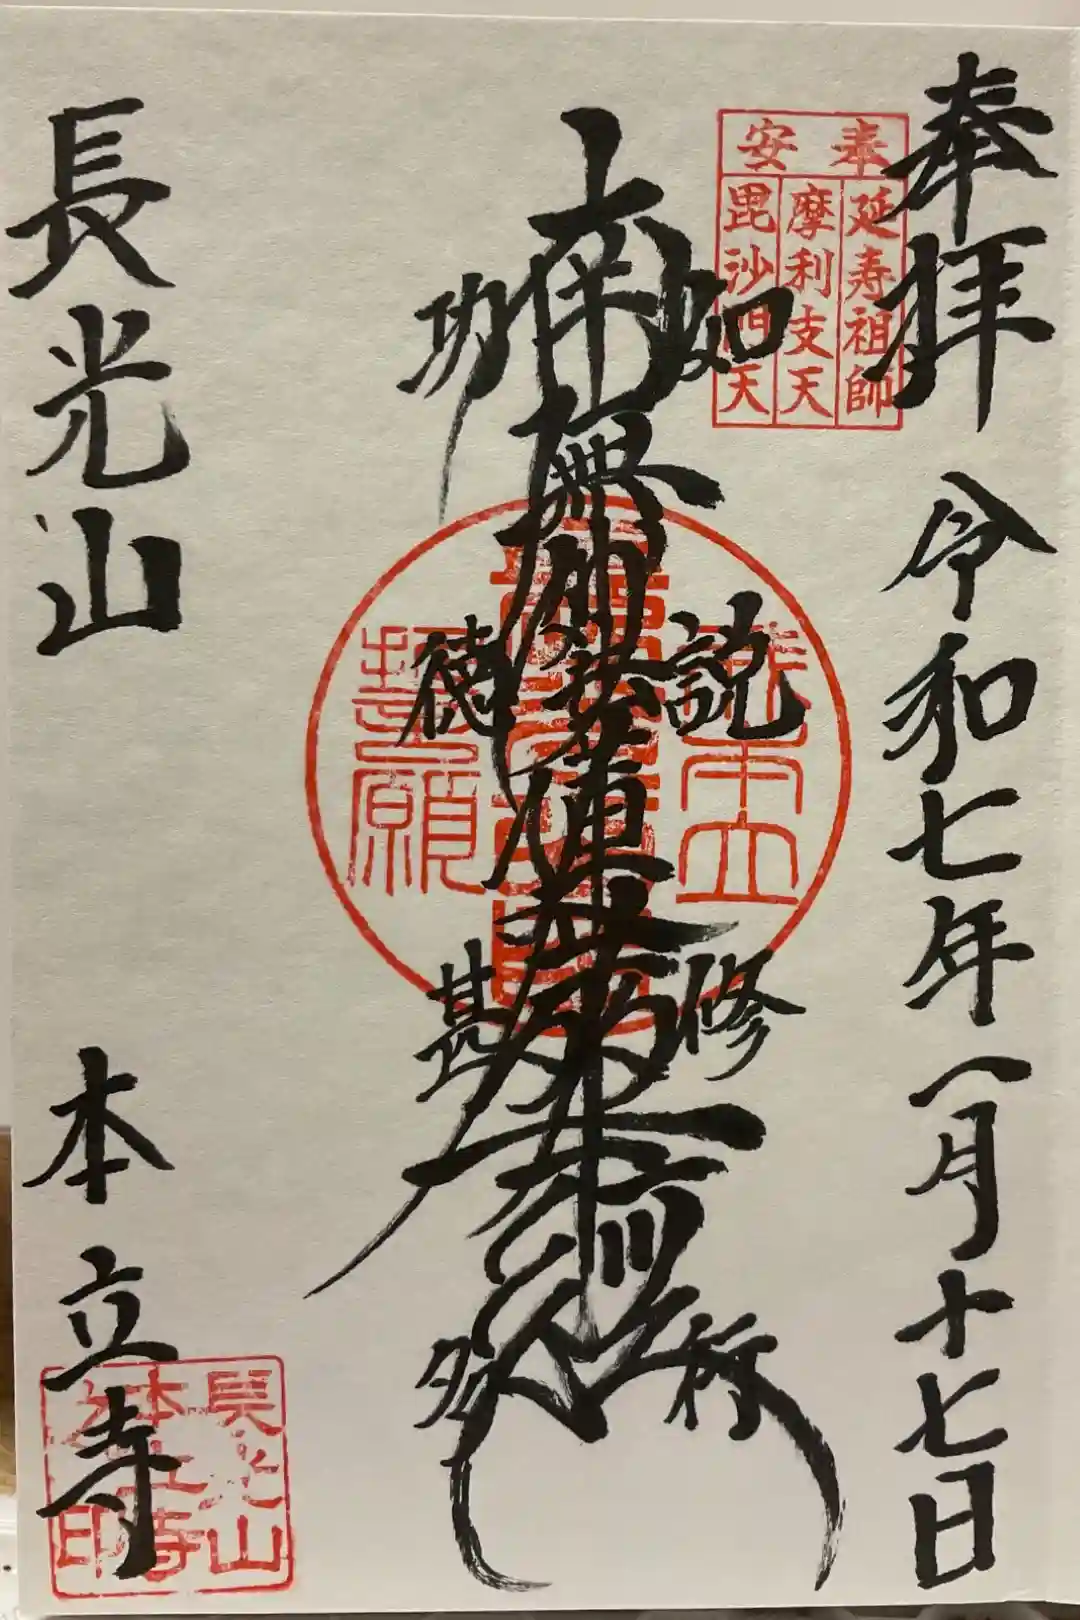 奉拝 令和七年一月十七日
奉安
延寿祖師
摩利支天
毘沙門天
如説修行
南無妙法蓮華経
功徳甚多
我不
誓願
長光山 本立寺
長光山
本立寺
之印